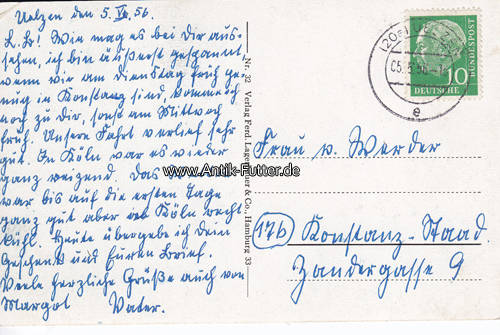 Uelzen den 5. VI. 56.
L. B! Wie mag es bei dir aus-
sehen, ich bin äußerst gespannt,
wenn wir am Dienstag früh ge-
nug in Konstanz sind, komme ich
noch zu dir, sonst am Mittwoch
früh. Unsere Fahrt verlief sehr
gut. In Köln war es wieder
ganz reizend. Das
war bis auf die ersten Tage
ganz gut aber in Köln recht
kühl. Heute übergab ich dein
Geschenk und Euren Brief.
Viele herzliche Grüße auch von
Margot Vater.
Nr. 32 Verlag Ferd. & Co., Hamburg 33
www.Antik-Futter.de
(20
05.
e
10
DEUTSCHE
BUNDESPOST
Frau v. Werder
(17b) Konstanz-Staad
Zandergasse 9